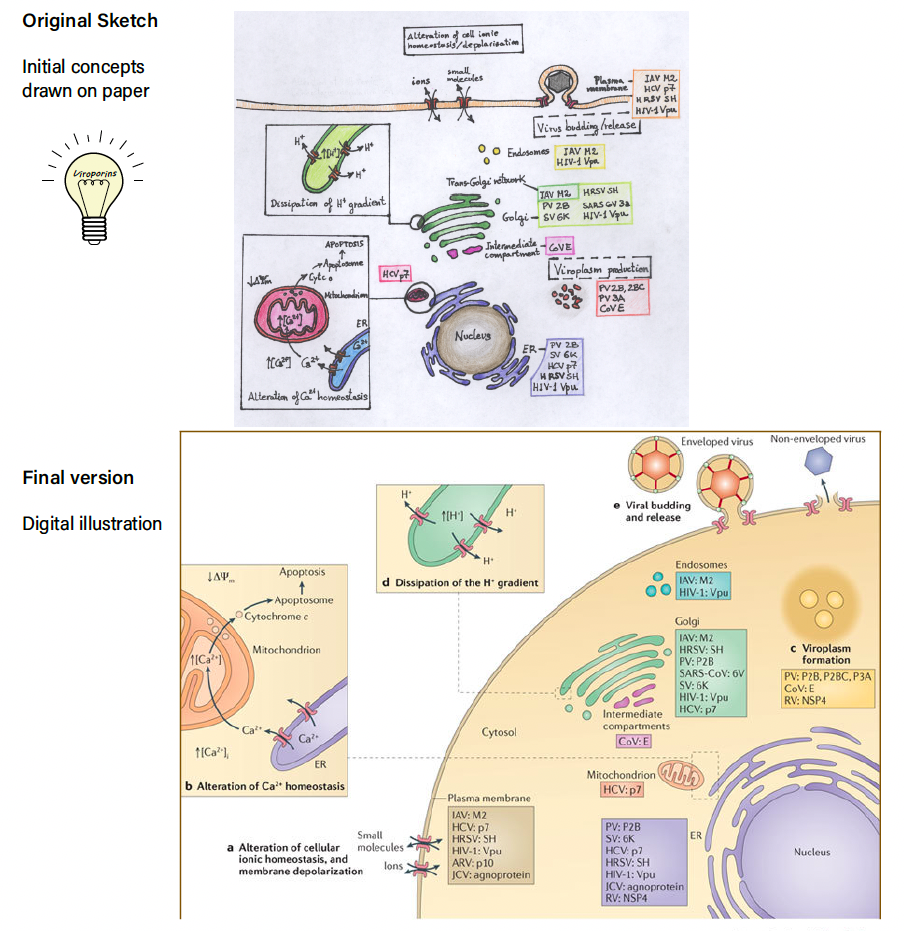 Original Sketch
Initial concepts
drawn on paper
Viroporins
Alteration of cell ionic
homeostasis/depolarization
ions
small
molecules
Plasma
membrane
IAV M2
HCV p7
HRSV SH
HIV-1 Vpu
Virus budding/release
H⁺
↑[H⁺]
H⁺
H⁺
Dissipation of H⁺ gradient
Endosomes
IAV M2
HIV-1 Vpu
Trans-Golgi network
Golgi
IAV M2
PV 2B
SV 6K
HRSV SH
SARS CoV 3a
HIV-1 Vpu
Intermediate
compartment
CoV E
Viroplasm production
PV2B, 2BC
PV 3A
CoV E
APOPTOSIS
Apoptosome
Cytc
↓ΔΨm
Mitochondrion
↑[Ca²⁺]
ER
Ca²⁺
↑[Ca²⁺]
Ca²⁺
Alteration of Ca²⁺ homeostasis
HCV p7
Nucleus
ER
PV 2B
SV 6K
HCV p7
HRSV SH
HIV-1 Vpu
Final version
Digital illustration
Enveloped virus
Non-enveloped virus
e Viral budding
and release
H⁺
↑[H⁺]
H⁺
H⁺
d Dissipation of the H⁺ gradient
↓ΔΨm
Apoptosis
Apoptosome
Cytochrome c
Mitochondrion
↑[Ca²⁺]
Ca²⁺
Ca²⁺
↑[Ca²⁺]i
ER
b Alteration of Ca²⁺ homeostasis
Endosomes
IAV: M2
HIV-1: Vpu
Golgi
IAV: M2
HRSV: SH
PV: P2B
SARS-CoV: 6V
SV: 6K
HIV-1: Vpu
HCV: p7
Intermediate
compartments
CoV: E
c Viroplasm
formation
PV: P2B, P2BC, P3A
CoV: E
RV: NSP4
Cytosol
Mitochondrion
HCV: p7
Plasma membrane
IAV: M2
HCV: p7
HRSV: SH
HIV-1: Vpu
ARV: p10
JCV: agnoprotein
Small
molecules
Ions
a Alteration of cellular
ionic homeostasis, and
membrane depolarization
PV: P2B
SV: 6K
HCV: p7
HRSV: SH
HIV-1: Vpu
JCV: agnoprotein
RV: NSP4
ER
Nucleus